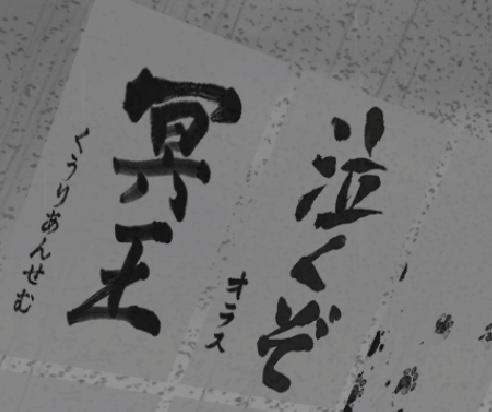 泣くぞ
オラス
冥王
くうりあんせむ